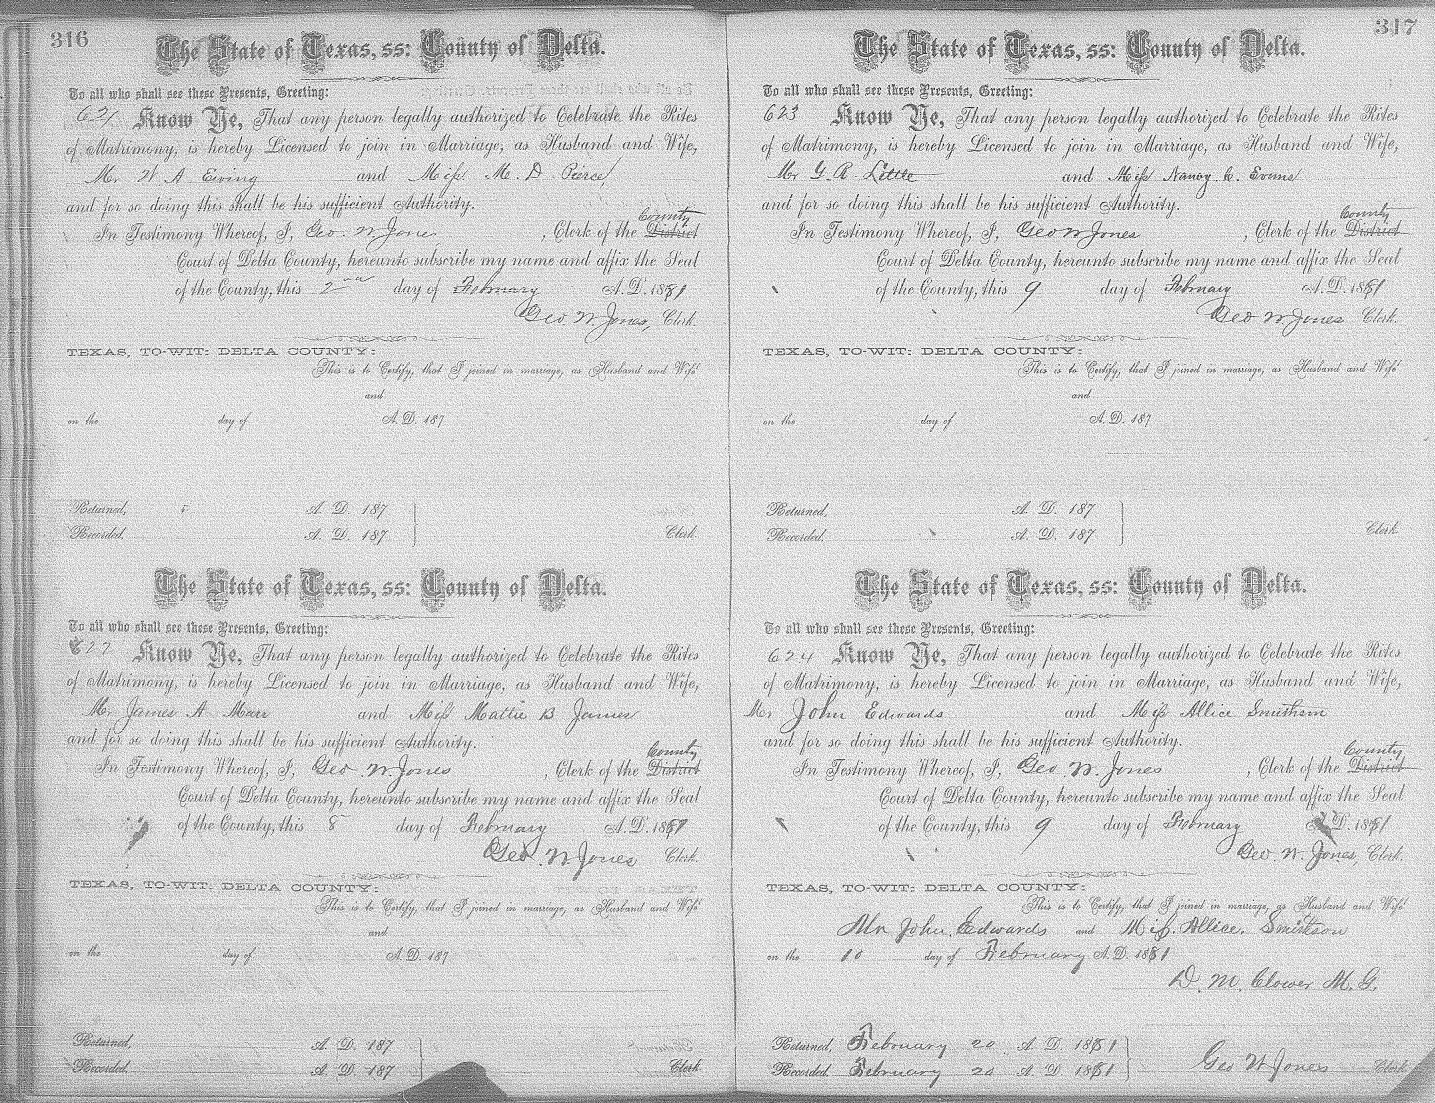 316
The State of Texas, ss: County of Delta.
To all who shall see these Presents, Greeting:
621 Know Ye, That any person legally authorized to Celebrate the Rites
of Matrimony, is hereby Licensed to join in Marriage, as Husband and Wife,
Mr. W A Ewing and Miss M. D Pierce,
and for so doing this shall be his sufficient Authority.
County
In Testimony Whereof, I, Geo. W Jones, Clerk of the District
Court of Delta County, hereunto subscribe my name and affix the Seal
of the County, this 2nd day of February A. D. 1881
Geo W. Jones, Clerk.
TEXAS, TO-WIT: DELTA COUNTY:
This is to Certify, that I joined in marriage, as Husband and Wife
and
on the day of A. D. 187
Returned, A. D. 187
Recorded, A. D. 187 Clerk.
The State of Texas, ss: County of Delta.
To all who shall see these Presents, Greeting:
622 Know Ye, That any person legally authorized to Celebrate the Rites
of Matrimony, is hereby Licensed to join in Marriage, as Husband and Wife,
Mr. James A Marr and Miss Mattie B James
and for so doing this shall be his sufficient Authority.
County
In Testimony Whereof, I, Geo. W. Jones, Clerk of the District
Court of Delta County, hereunto subscribe my name and affix the Seal
of the County, this 8 day of February A. D. 1881
Geo. W Jones Clerk.
TEXAS, TO-WIT: DELTA COUNTY:
This is to Certify, that I joined in marriage, as Husband and Wife
and
on the day of A. D. 187
Returned, A. D. 187
Recorded, A. D. 187 Clerk.
317
The State of Texas, ss: County of Delta.
To all who shall see these Presents, Greeting:
623 Know Ye, That any person legally authorized to Celebrate the Rites
of Matrimony, is hereby Licensed to join in Marriage, as Husband and Wife,
Mr G. R Little and Miss Nancy Evans
and for so doing this shall be his sufficient Authority.
County
In Testimony Whereof, I, Geo W Jones, Clerk of the District
Court of Delta County, hereunto subscribe my name and affix the Seal
of the County, this 9 day of February A. D. 1881
Geo W. Jones Clerk.
TEXAS, TO-WIT: DELTA COUNTY:
This is to Certify, that I joined in marriage, as Husband and Wife
and
on the day of A. D. 187
Returned, A. D. 187
Recorded, A. D. 187 Clerk.
The State of Texas, ss: County of Delta.
To all who shall see these Presents, Greeting:
624 Know Ye, That any person legally authorized to Celebrate the Rites
of Matrimony, is hereby Licensed to join in Marriage, as Husband and Wife,
Mr John Edwards and Miss Allice Smithson
and for so doing this shall be his sufficient Authority.
County
In Testimony Whereof, I, Geo. W. Jones, Clerk of the District
Court of Delta County, hereunto subscribe my name and affix the Seal
of the County, this 9 day of February A. D. 1881
Geo. W. Jones, Clerk.
TEXAS, TO-WIT: DELTA COUNTY:
This is to Certify, that I joined in marriage, as Husband and Wife
Mr John Edwards and Miss. Allice. Smithson
on the 10 day of February A. D. 1881
D. M. Clower M. G.
Returned, February 20 A. D. 1881
Recorded, February 20 A. D. 1881 Geo W Jones Clerk